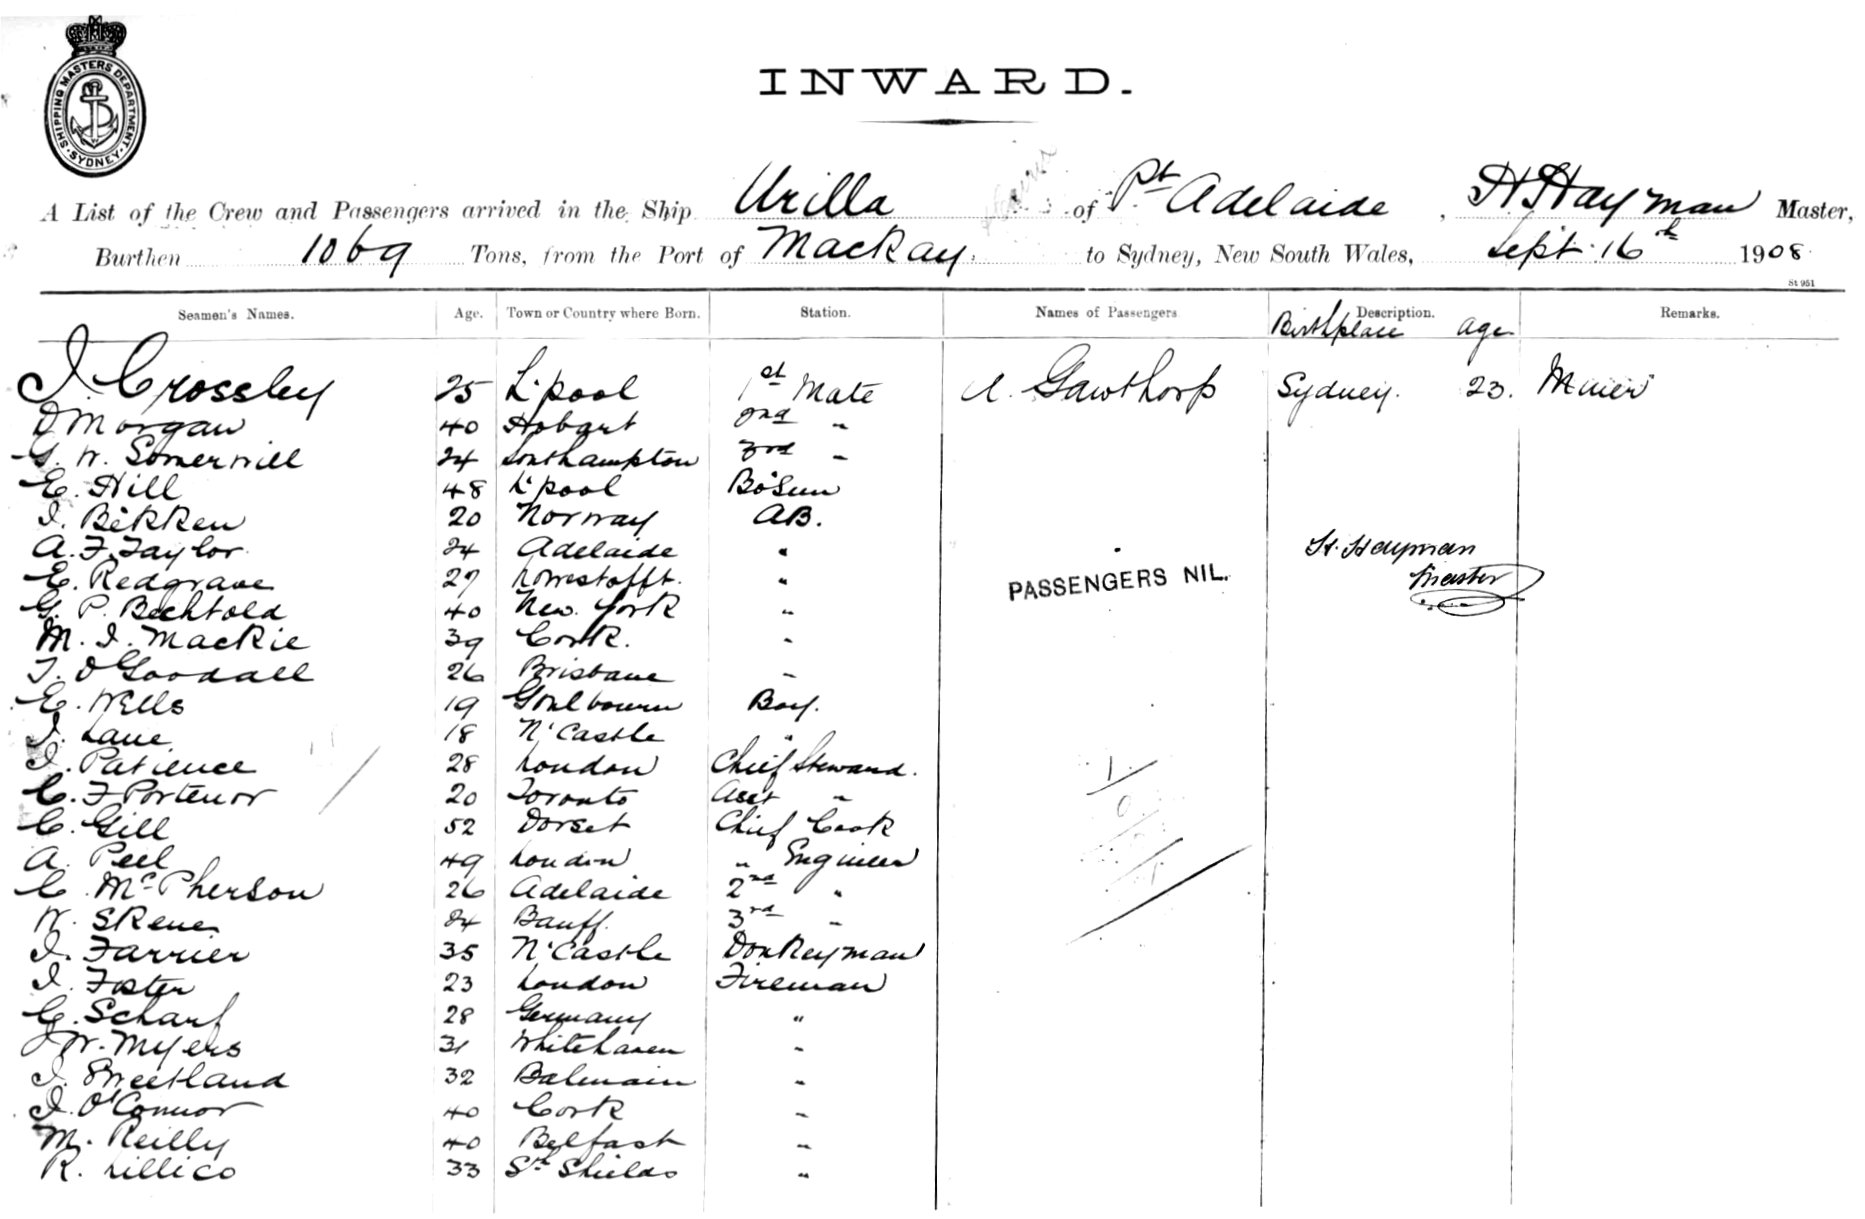 SHIPPING MASTERS DEPARTMENT. SYDNEY
INWARD.
A List of the Crew and Passengers arrived in the Ship Urilla of Pt Adelaide, H Hayman Master,
Burthen 1069 Tons, from the Port of Mackay, to Sydney, New South Wales, Sept. 16th 1908
St 951
Seamen's Names. Age. Town or Country where Born. Station. Names of Passengers Description. Remarks.
Birthplace age
J. Crossley 25 L'pool 1st Mate A. Gawthorp Sydney. 23.
D Morgan 40 Hobart 2nd "
G. W. Somerville 24 Southampton 3rd "
E. Hill 48 L'pool Bo'sun
J. Bekken 20 Norway AB.
A. F. Taylor 24 Adelaide " H. Hayman
E. Redgrave 27 Lowestofft. " Master
PASSENGERS NIL.
G. P. Bechtold 40 New York "
M. J. Mackie 39 Cork. "
T. O'Goodall 26 Brisbane "
E. Wells 19 Goulbourn Boy.
J. Lane 18 N'Castle "
J. Patience 28 London Chief Steward.
C. F Portenor 20 Toronto Asst "
C. Gill 52 Dorset Chief Cook
A. Peel 49 London " Engineer
C. McPherson 26 Adelaide 2nd "
W. Skene 24 Banff. 3rd "
J. Farrier 35 N'Castle Donkeyman
J. Foster 23 London Fireman
G. Scharf 28 Germany "
J W. Myers 31 Whitehaven "
J. Sweetland 32 Balmain "
J. O'Connor 40 Cork "
M. Reilly 40 Belfast "
R. Lillico 33 Sth Shields "